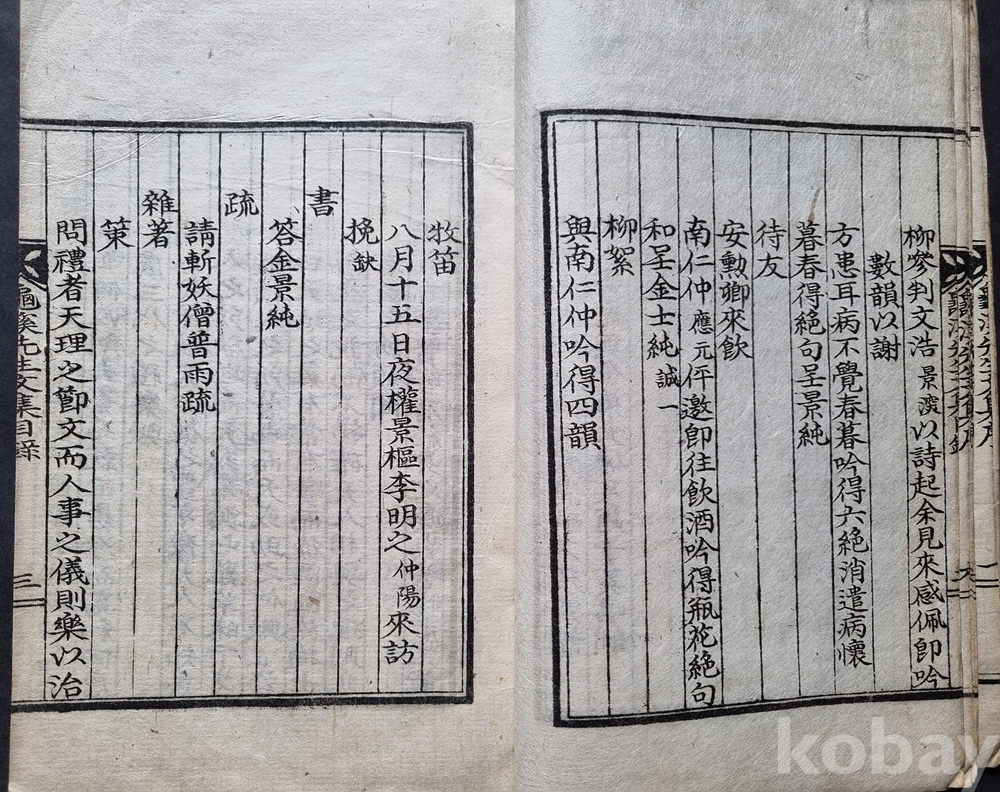 柳參判文浩景濴以詩起余見來感佩卽吟
數韻以謝
方患耳病不覺春暮吟得六絶消遣病懷
暮春得絶句呈景純
待友
安勳卿來飮
南仁仲應元伻邀卽往飮酒吟得甁花絶句
和呈金士純誠一
柳絮
與南仁仲吟得四韻
牧笛
八月十五日夜權景樞李明之仲陽來訪
挽缺
書
答金景純
疏
請斬妖僧普雨疏
雜著
策
問禮者天理之節文而人事之儀則樂以治
龜溪先生文集目錄
三
kobay